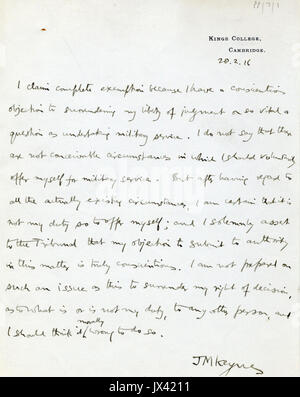 PP/7/1
KINGS COLLEGE,
CAMBRIDGE.
28.2.16
I claim complete exemption because I have a conscientious
objection to surrendering my liberty of judgment on so vital a
question as undertaking military service. I do not say that there
are not conceivable circumstances in which I should voluntarily
offer myself for military service. But after having regard to
all the actually existing circumstances, I am certain that it is
not my duty so to offer myself; and I solemnly assert
to the Tribunal that my objection to submit to authority
in this matter is truly conscientious. I am not prepared on
such an issue as this to surrender my right of decision,
as to what is or is not my duty, to any other person, and
I should think it morally wrong to do so.
JMKeynes
alamy
Image ID: JX4211
www.alamy.com